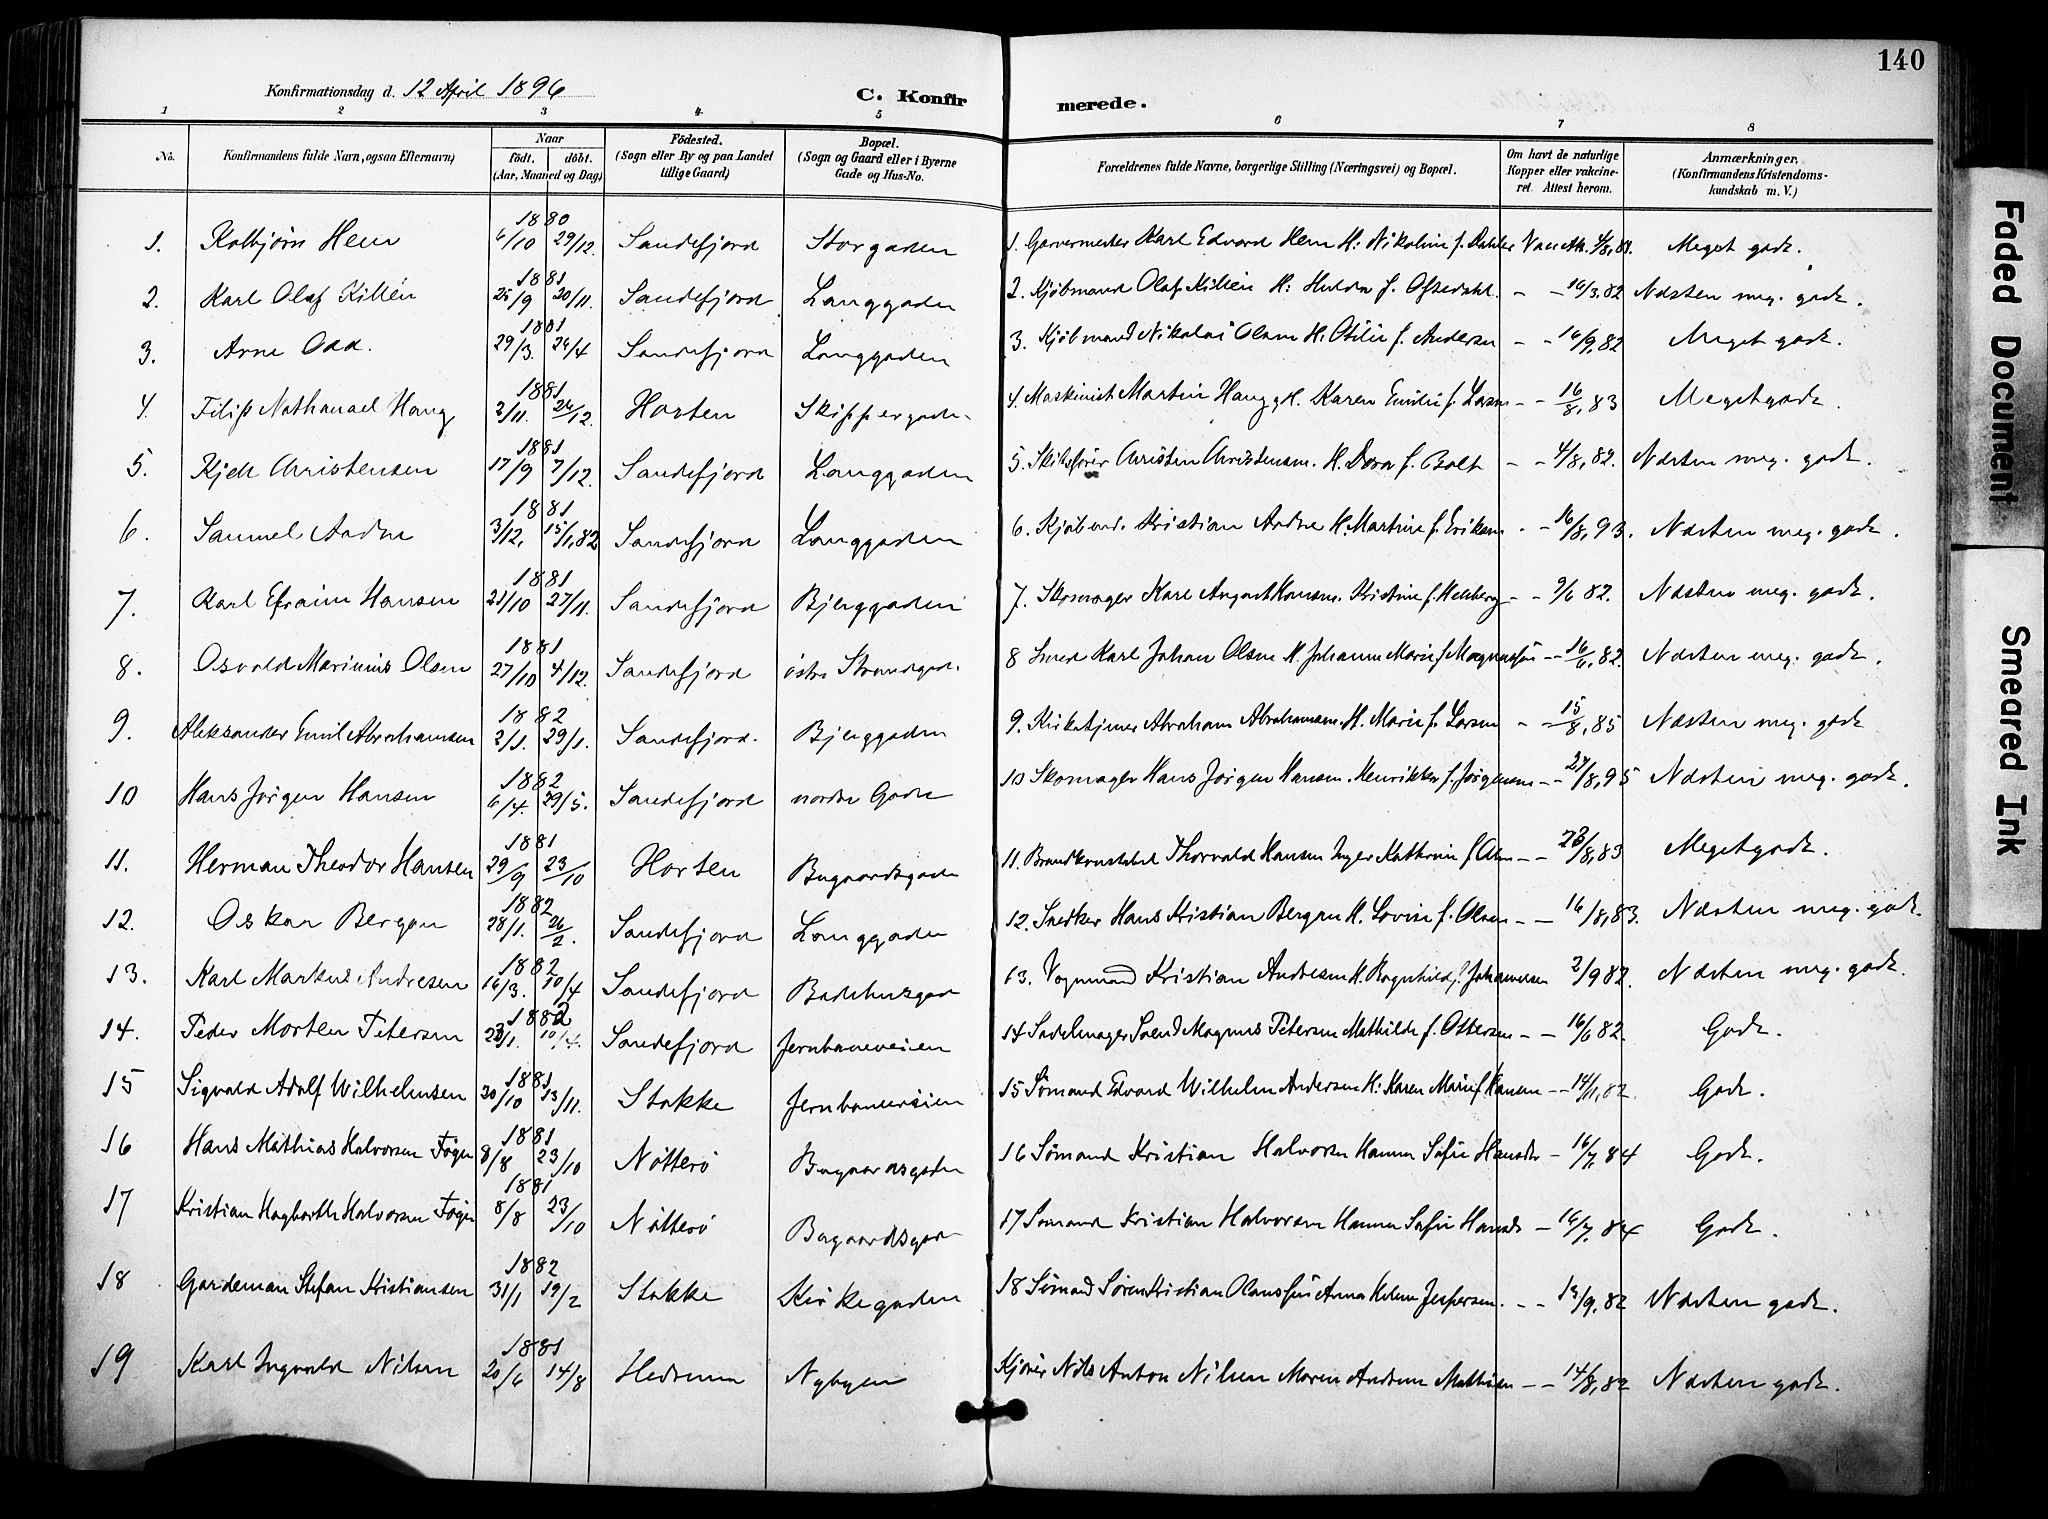 140
Konfirmationsdag d. 12 April 1896
C. Konfir merede.
1 2 3 4. 5 6 7 8
No. Konfirmandens fulde Navn, ogsaa Efternavn) Naar født. døbt. (Aar, Maaned og Dag) Fødested. (Sogn eller By og paa Landet tillige Gaard) Bopæl. (Sogn og Gaard eller i Byerne Gade og Hus-No. Forældrenes fulde Navne, borgerlige Stilling (Næringsvei) og Bopæl. Om havt de naturlige Kopper eller vakcineret. Attest herom. Anmærkninger. (Konfirmandens Kristendomskundskab m. V.)
1. Kolbjørn Hem 1880 6/10 29/12. Sandefjord Storgaden 1. Garvermester Karl Edvard Hem H: Nikoline f. Dahler Vacc Att. 4/8, 81. Meget godt.
2. Karl Olaf Killén 1881 25/9 20/11. Sandefjord Langgaden 2. Kjøbmand Olaf Killén H: Hulda f. Oftedahl. - - 16/3. 82 Næsten meg. godt.
3. Arne Odd. 1881 29/3. 24/4 Sandefjord Langgaden 3. Kjøbmand Nikolai Olsen H. Otilie f. Andersen - - 16/9, 82 Meget godt.
4. Filip Nathanael Haug 1881 2/11. 26/12. Horten Skippergade. 4. Maskinist Martin Haug H. Karen Emilie f. Larsen - - 16/8, 83 Meget godt.
5. Kjell Christensen 1881 17/9 7/12. Sandefjord Langgaden 5. Skibsfører Christen Christensen. H. Dora f. Bolt - - 4/8, 82. Næsten meg. godt.
6. Samuel Andre 1881 3/12. 15/1, 82 Sandefjord Langgaden 6. Kjøbmd. Kristian Andre H. Martine f. Eriksen - - 16/8, 93. Næsten meg. godt.
7. Karl Efraim Hansen 1881 21/10 27/11. Sandefjord Bjerggaden 7. Skomager Karl August Hansen. Kristine f. Melberg - - 9/6 82. Næsten meg. godt.
8. Osvald Marinius Olsen 1881 27/10 4/12. Sandefjord østre Strandgad. 8 Smed Karl Johan Olsen H. Johanne Marie f Magnussen - - 16/6, 82. Næsten meg. godt.
9. Aleksander Emil Abrahamsen 1882 2/1. 29/1. Sandefjord. Bjerggaden 9. Kirketjener Abraham Abrahamsen. H. Marie f. Larsen - - 15/8, 85 Næsten meg. godt
10 Hans Jørgen Hansen 1882 6/4. 29/5. Sandefjord nordre Gade 10 Skomager Hans Jørgen Hansen. Henrikke f. Jørgensen - - 27/8, 95 Næsten meg. godt.
11. Herman Theodor Hansen 1881 29/9 23/10 Horten Bugaardsgade 11. Brandkonstabel Thorvald Hansen Inger Kathrine f Olsen - - 23/8, 83 Meget godt.
12. Oskar Bergan 1882 28/1. 26/2. Sandefjord Langgaden 12. Snedker Hans Kristian Bergan H. Lovise f. Olsen - - 16/8, 83. Næsten meg. godt.
13. Karl Markus Andresen 1882 16/3. 10/4 Sandefjord Badehusgad 13. Vognmand Kristian Andresen H. Ragnhild f. Johannesen 2/9 82. Næsten meg. godt.
14. Peder Morten Petersen 1882 23/1. 10/4. Sandefjord Jernbaneveien 14 Sadelmager Svend Magnus Petersen Mathilde f. Ottersen - - 16/6 82. Godt.
15 Sigvald Adolf Wilhelmsen 1881 30/10 13/11. Stokke Jernbaneveien 15 Sømand Edvard Wilhelm Andersen H: Karen Marie f Hansen - - 14/11, 82. Godt.
16 Hans Mathias Halvorsen Føyn 1881 8/8 23/10 Nøtterø Bugaardsgaden 16 Sømand Kristian Halvorsen Hanna Sofie Hansdr - 16/7, 84 Godt.
17 Kristian Hagbarth Halvorsen Føyn 1881 8/8 23/10 Nøtterø Bugaardsgad 17 Sømand Kristian Halvorsen Hanna Sofie Hansdr - 16/7. 84 Godt.
18 Gardeman Stefan Kristiansen 1882 31/1 19/2 Stokke Kirkegaden 18 Sømand Søren Kristian Olaussen Anna Helene Jespersen. - - 19/9. 82 Næsten godt.
19 Karl Ingvald Nilsen 1881 20/6 14/8 Hedrum Nybyen Kjører Nils Anton Nilsen Maren Andrine Mathisen - - 14/8, 82 Næsten godt.
Faded Document
Smeared Ink